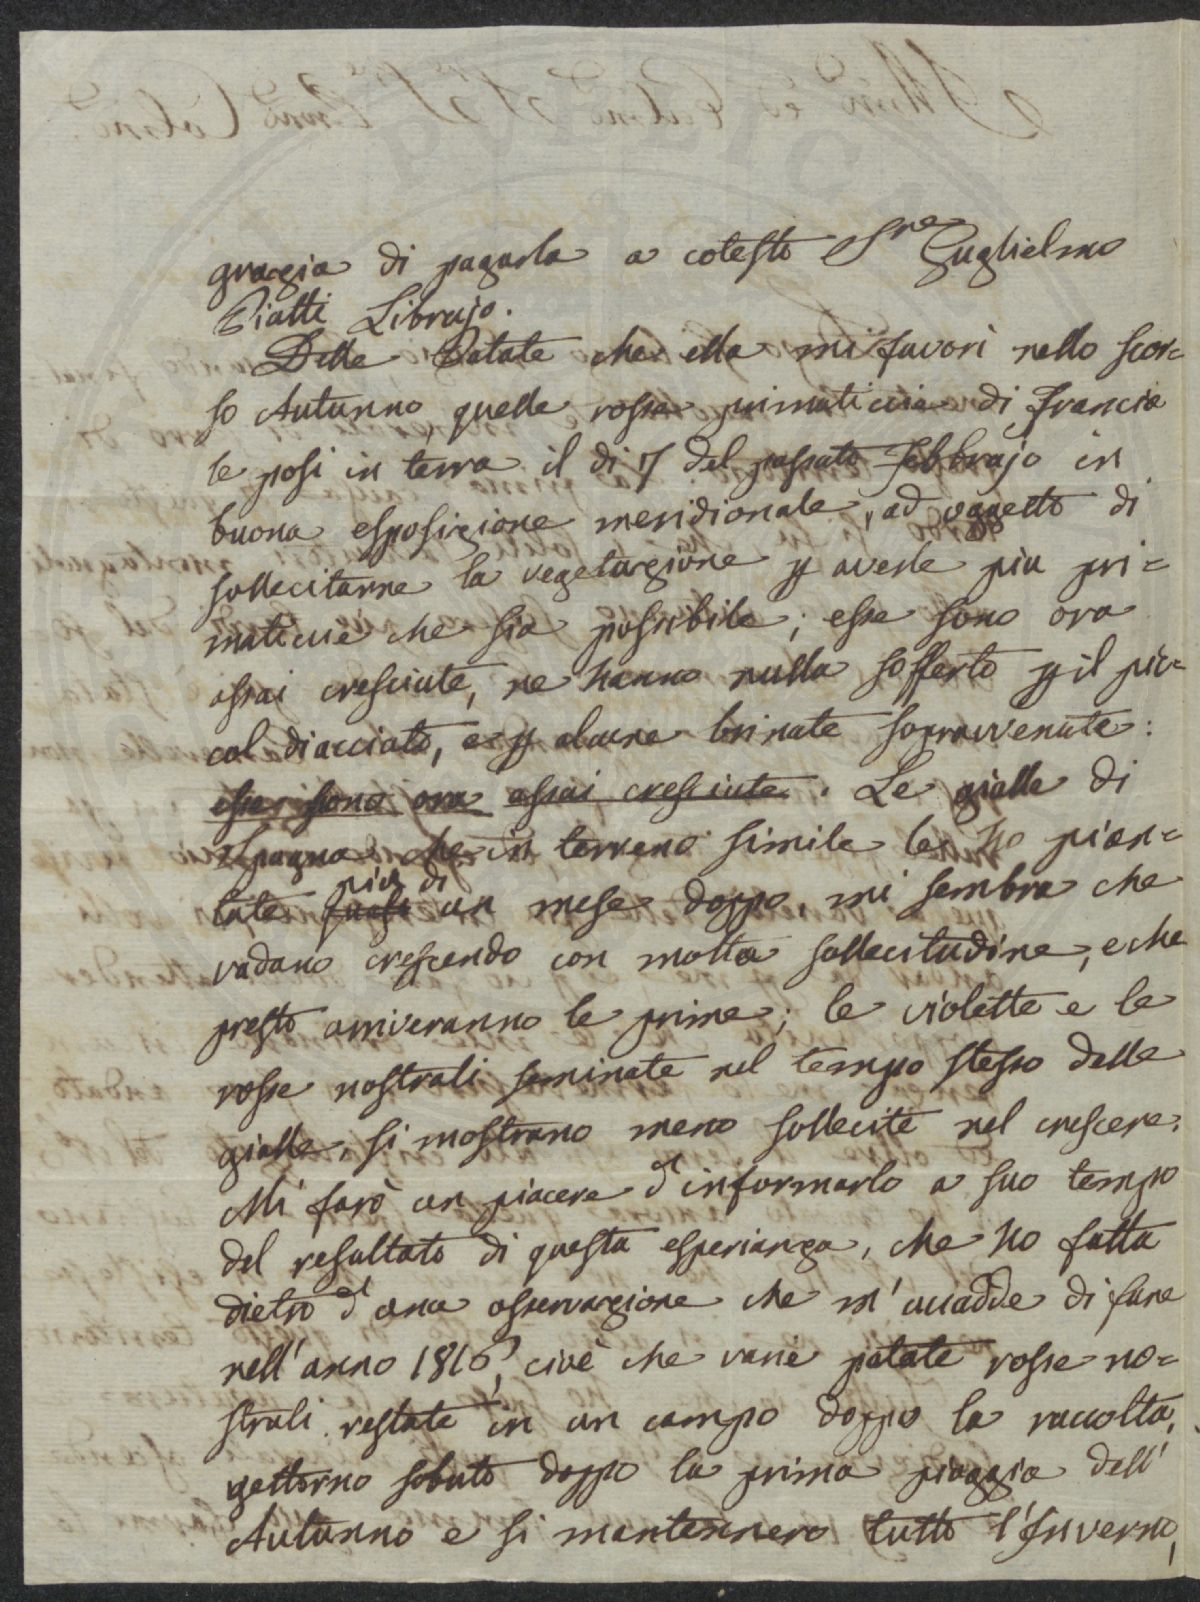 grazia di pagarla a cotesto Sre Guglielmo
Piatti Librajo.
Delle Patate che ella mi favorì nello scor=
so Autunno, quelle rosse primaticcie di Francia
le posi in terra il di 7 del passato Febbrajo in
buona esposizione meridionale, ad oggetto di
sollecitarne la vegetazione p averle più pri=
maticcie che sia possibile; esse sono ora
assai cresciute, ne hanno nulla sofferto p il pic=
col diacciato, e p alcune brinate sopravvenute:
esse sono ora assai cresciute. Le gialle di
Spagna che in terreno simile le ho pian=
tate quasi più di un mese doppo, mi sembra che
vadano crescendo con molta sollecitudine, e che
presto arriveranno le prime; le violette e le
rosse nostrali seminate nel tempo stesso delle
gialle, si mostrano meno sollecite nel crescere.
Mi farò un piacere d'informarlo a suo tempo
del resultato di questa esperianza, che ho fatta
dietro d'una osservazione che m'accadde di fare
nell'anno 1816, cioè che varie patate rosse no=
strali restate in un campo doppo la raccolta,
gettorno subito doppo la prima pioggia dell'
Autunno e si mantennero tutto l'Inverno,